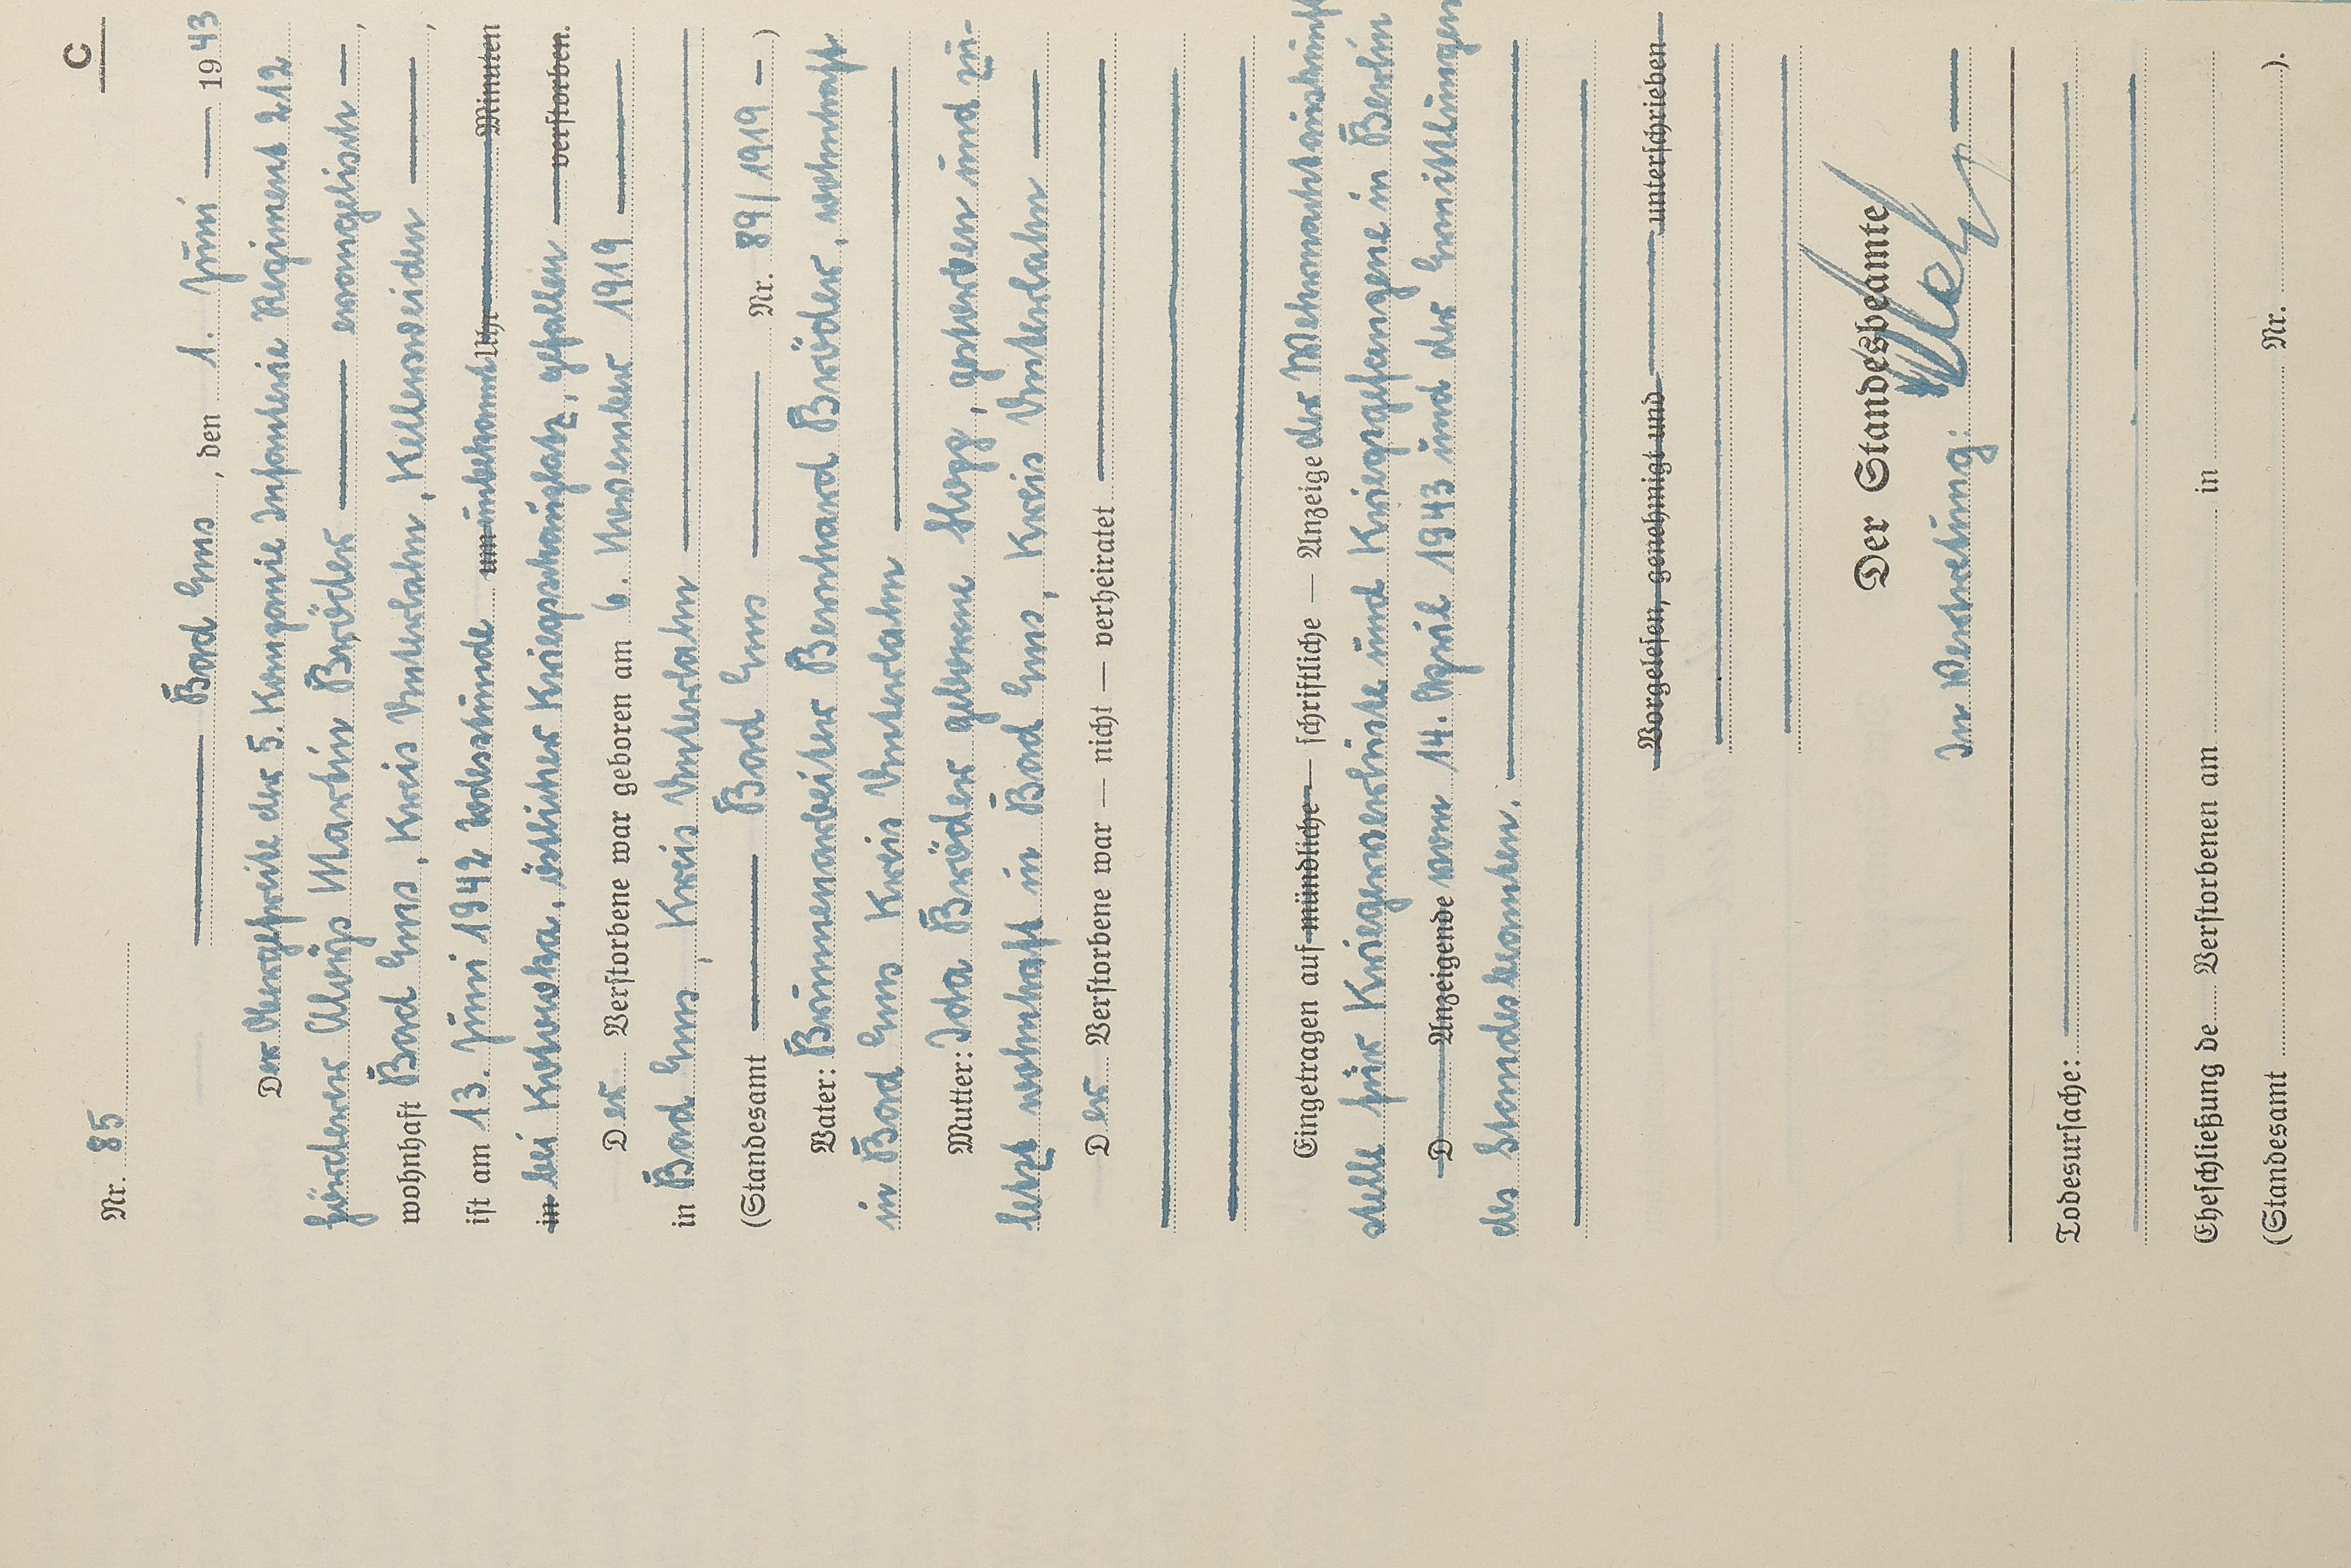 C
Nr. 85
Bad Ems, den 1. Juni 1943
Der Obergefreite der 5. Kompanie Infanterie Regiment 212
Martin Bröder evangelisch,
wohnhaft Bad Ems, Kreis Unterlahn, Kellerweiden,
ist am 13. Juni 1942 Todesstunde um unbekannt Uhr Minuten
in bei östlicher Kriegsschauplatz, gefallen verstorben.
Der Verstorbene war geboren am 6. November 1919
in Bad Ems, Kreis Unterlahn
(Standesamt Bad Ems Nr. 89/1919 )
Vater: Brunnenarbeiter Bernhard Bröder, wohnhaft
in Bad Ems Kreis Unterlahn
Mutter: Ida Bröder geborene, gestorben und zu-
letzt wohnhaft in Bad Ems, Kreis Unterlahn
Der Verstorbene war — nicht — verheiratet
Eingetragen auf mündliche — schriftliche — Anzeige der Wehrmachtauskunft
stelle für Kriegerverluste und Kriegsgefangene in Berlin
D Anzeigende vom 14. April 1943 und der Ermittlungen
des Standesbeamten.
Vorgelesen, genehmigt und unterschrieben
Der Standesbeamte
In Vertretung:
Todesursache:
Eheschließung de Verstorbenen am in
(Standesamt Nr. ).